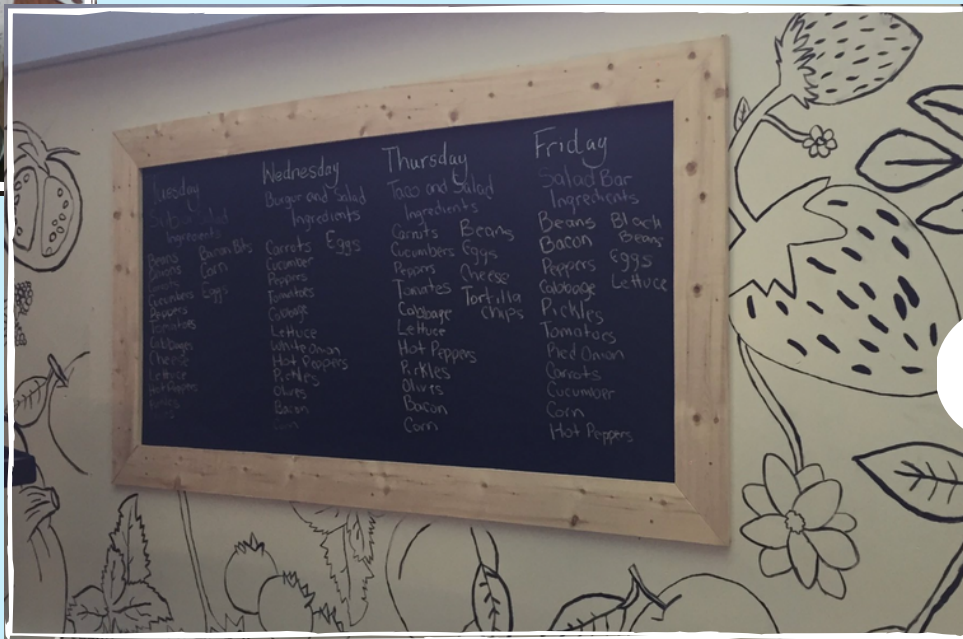 Tuesday
Ingredients
Beans
Carrots
Cucumbers
Peppers
Tomatoes
Cabbage
Cheese
Lettuce
Hot Peppers
Pickles
Bacon Bits
Corn
Eggs
Wednesday
Burger and Salad
Ingredients
Carrots
Cucumber
Peppers
Tomatoes
Cabbage
Lettuce
White Onion
Hot Peppers
Pickles
Olives
Bacon
Corn
Eggs
Thursday
Taco and Salad
Ingredients
Carrots
Cucumbers
Peppers
Tomatoes
Cabbage
Lettuce
Hot Peppers
Pickles
Olives
Bacon
Corn
Beans
Eggs
Cheese
Tortilla
chips
Friday
Salad Bar
Ingredients
Beans
Bacon
Peppers
Cabbage
Pickles
Tomatoes
Red Onion
Carrots
Cucumber
Corn
Hot Peppers
Black
Beans
Eggs
Lettuce